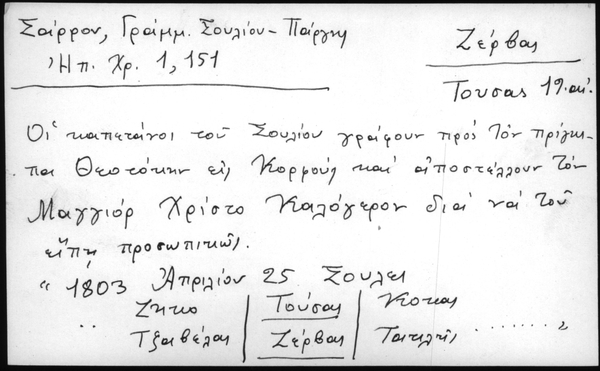 Σάρρον, Γράμμ. Σουλίου - Πάργης
Ἠπ. Χρ. 1, 151
Ζέρβας
Τούσας 19. αἰ.
Οἱ καπετάνοι τοῦ Σουλίου γράφουν πρός τόν πρίγκη-
πα Θεοτόκην εἰς Κορφούς καί ἀποστέλλουν τόν
Μαγγιόρ Χρίστο Καλόγερον διά νά τοῦ
εἴπῃ προσωπικῶς.
" 1803 Ἀπριλίου 25 Σουλει
Ζηκο | Τούσας | Κοτας
.. Τζαβέλας | Ζέρβας | ....... "